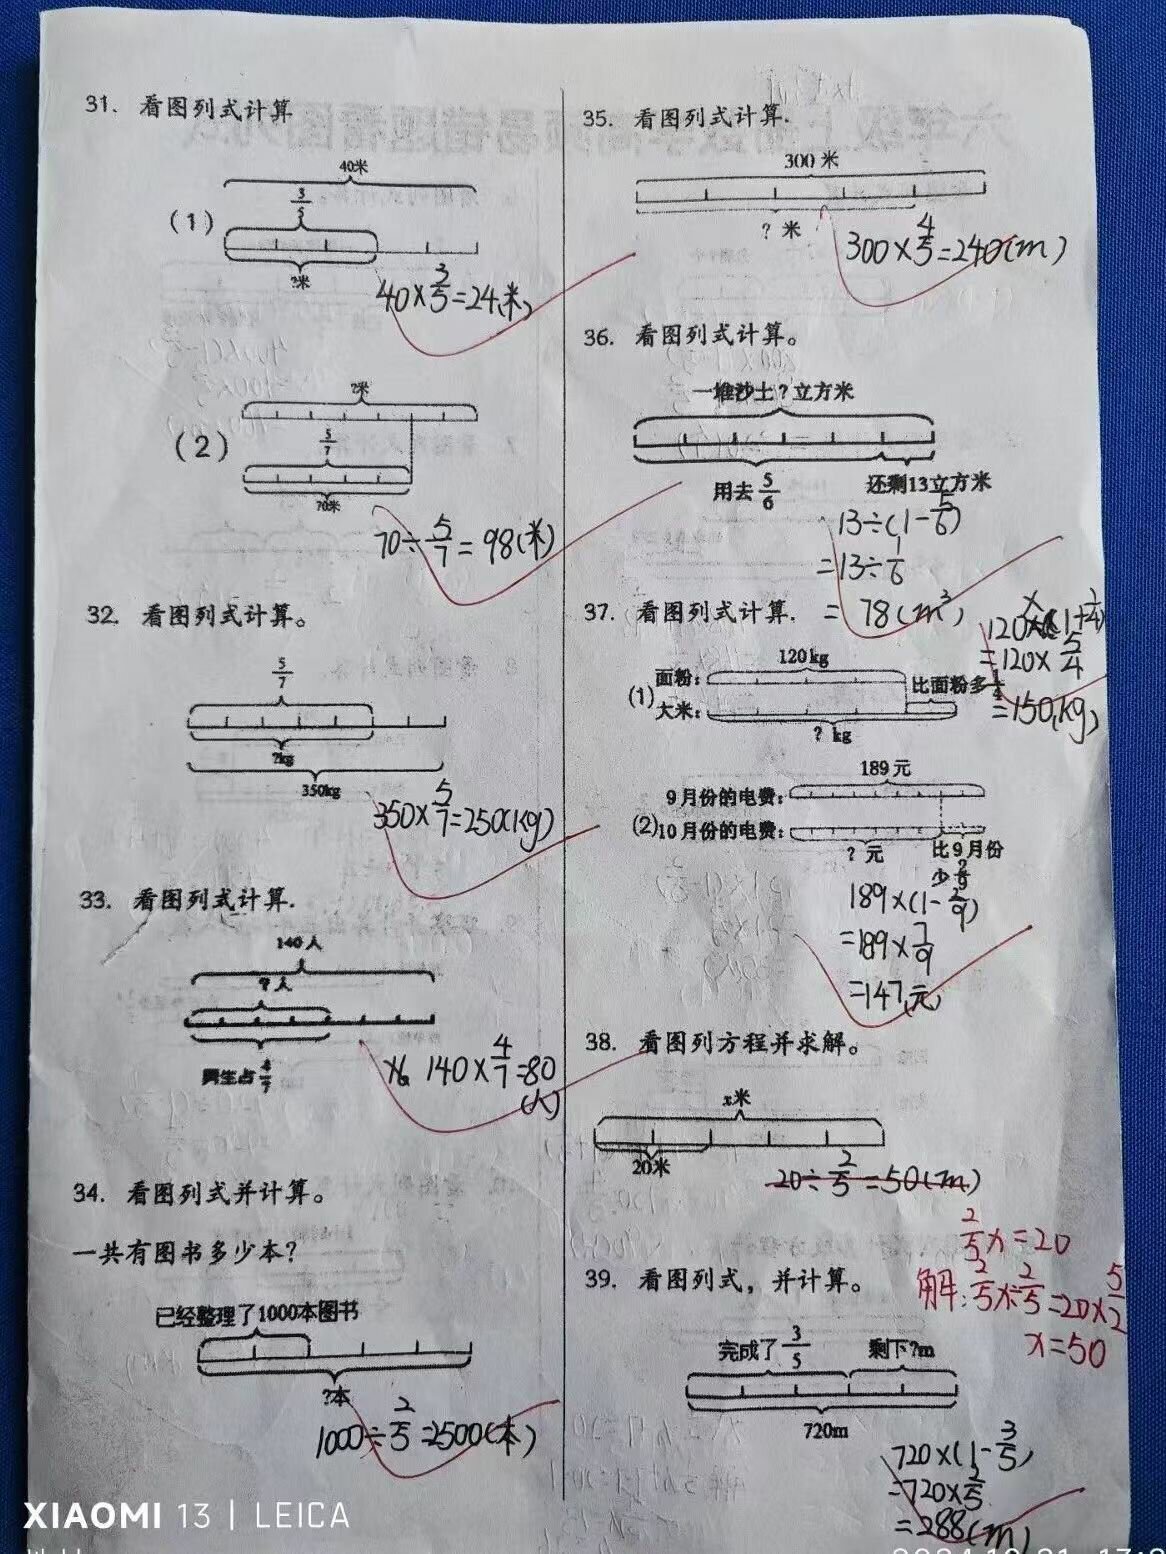 31. 看图列式计算
40米
3/5
(1)
?米
40×3/5=24(米)
?米
(2)
5/7
70米
70÷5/7=98(米)
32. 看图列式计算。
5/7
?kg
350kg
350×5/7=250(kg)
33. 看图列式计算.
140人
?人
男生占4/7
140×4/7=80
(人)
34. 看图列式并计算。
一共有图书多少本?
已经整理了1000本图书
?本
1000÷2/5=2500(本)
35. 看图列式计算.
300米
?米
300×4/5=240(m)
36. 看图列式计算。
一堆沙土?立方米
用去5/6 还剩13立方米
13÷(1-5/6)
=13÷1/6
=78(m³)
37. 看图列式计算.
120kg
面粉:
(1) 比面粉多1/4
大米:
?kg
120×(1+1/4)
=120×5/4
=150(kg)
189元
9月份的电费:
(2)10月份的电费:
?元 比9月份
少2/9
189×(1-2/9)
=189×7/9
=147(元)
38. 看图列方程并求解。
x米
20米
20÷2/5=50(m)
2/5x=20
解:2/5x÷2/5=20×5/2
x=50
39. 看图列式，并计算。
完成了3/5 剩下?m
720m
720×(1-3/5)
=720×2/5
=288(m)
XIAOMI 13 | LEICA